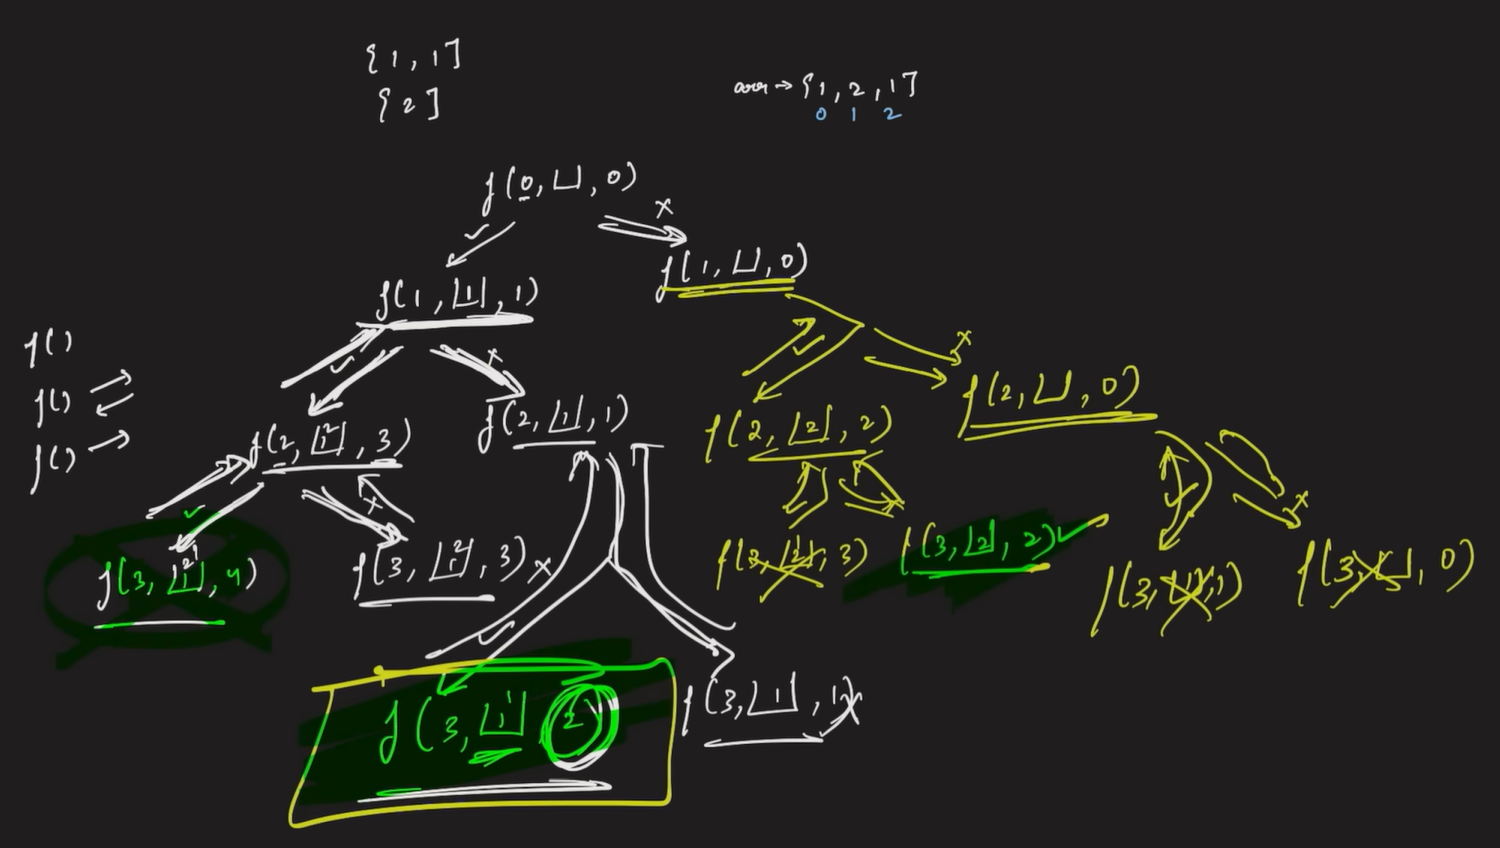 {1, 1]
{2]
arr → {1, 2, 1]
0 1 2
f(0, ⌊⌋, 0)
✓ x
f(1, ⌊⌋, 0)
f(1, |1|, 1)
f()
✓ x ✓ x
f()
f(2, ⌊⌋, 0)
f(2, |1 2|, 3)
f(2, |1|, 1)
f(2, |2|, 2)
f()
✓ x ✓ x
f(3, |1 2 1|, 4)
f(3, |1 2|, 3) x
f(3, |2 1|, 3)
f(3, |2|, 2) ✓
f(3, |1|, 1)
f(3, ⌊⌋, 0)
✓
f(3, |1 1| 2)
f(3, |1|, 1) x